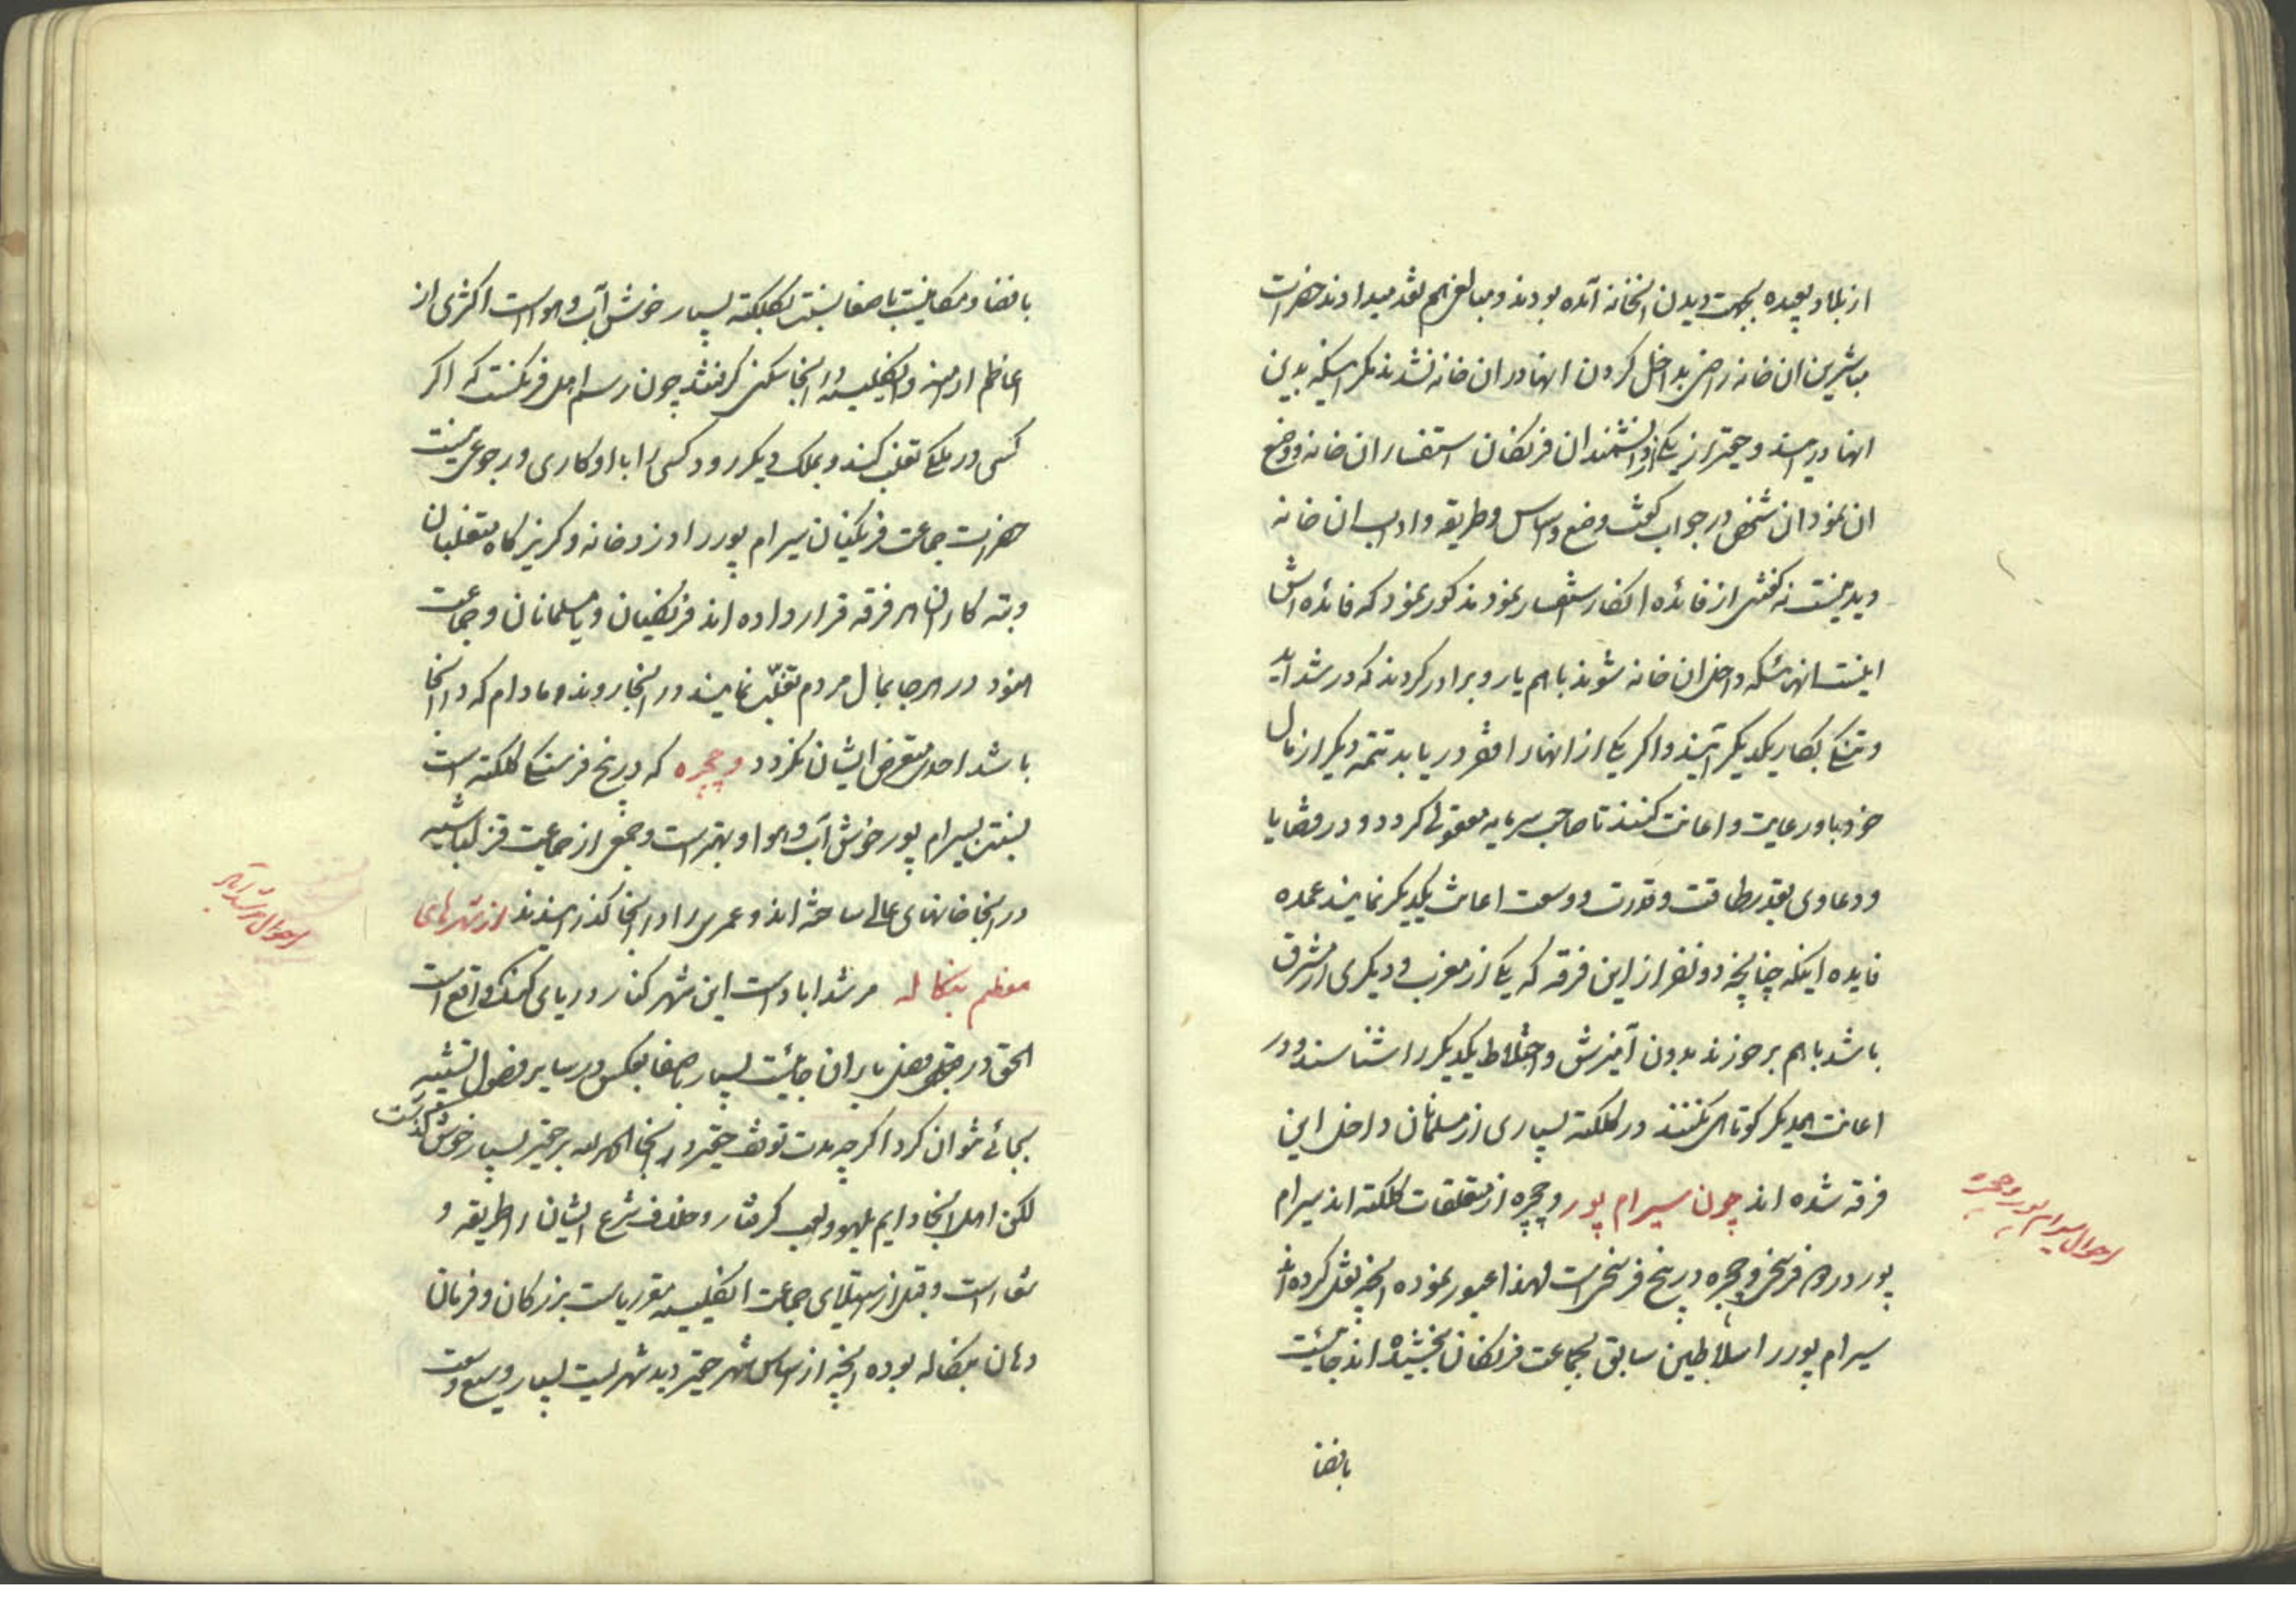 از بلاد بعیده بجهت دیدن انخانه آمده بودند و مبالغی هم نقد میدادند حضرات
مباشرین ان خانه راضی بداخل کردن انها در ان خانه نشدند مکر اینکه بدین
انها درایند و حقیر از یکی از دانشمندان فرنکان استفسار ان خانه و وضع
ان نمود ان شخص در جواب کفت وضع و اساس و طریقه و اداب ان خانه
دیدنیست نه کفتنی از فائده انکار استفسار نمودم مذکور نمود که فائده اش
اینست انهائیکه داخل ان خانه شوند باهم یار و برادر کردند که در شداید
و تنکی بکار یکدیکر آیند و اکر یکی از انها را فقر دریابد تتمه دیکر از مال
خود باو رعایت و اعانت کنند تا صاحب سرمایه معقولی کردد و در قضایا
و دعاوی بقدر طاقت و قدرت و وسعت اعانت یکدیکر نمایند عمده
فایده اینکه چنانچه دو نفر از این فرقه که یکی از مغرب و دیکری از مشرق
باشد باهم برخورند بدون آمیزش و اختلاط یکدیکر را شناسند و در
اعانت همدیکر کوتاهی نکنند در کلکته بسیاری از مسلمانان داخل این
فرقه شده اند چون سیرام پور و چچره از متعلقات کلکته اند سیرام
پور در دو فرسخی و چچره در پنج فرسخی است لهذا عبور نموده انچه نقل کرده اند
سیرام پور را سلاطین سابق بجماعت فرنکان بخشیده اند جائیست
احوال سیرام پور و چچره
بافضا
بافضا و مکانیست باصفا بنسبت بکلکته بسیار خوش آب و هواست اکثری از
اعاظم ارامنه و انکلیسیه در انجا سکنی کرفتند چون رسم اهل فرنکست که اکر
کسی در ملکی تقلب کند و بملک دیکر رود کسی را با او کاری و رجوعی نیست
حضرات جماعت فرنکیان سیرام پور را دزد خانه و کریزکاه متقلبان
و تبه کاران هر فرقه قرار داده اند فرنکیان و یا مسلمانان و جماعت
هنود در هر جا بمال مردم تقلّب نمایند در انجا روند و مادام که در انجا
باشد احدی متعرض ایشان نکردد و چچره که در پنج فرسنکی کلکته است
بنسبت بسیرام پور خوش آب و هوا و بهتر است و جمعی از جماعت قزلباشیه
در انجا خانهای عالی ساخته اند و عمری را در انجا کذرانیدند از شهرهای
معظم بنکاله مرشداباد است این شهر کنار دریای کنک واقع است
الحق در فصل باران جائیست بسیار باصفا بعکس در سایر فصول تشبیه
بجائی نتوان کرد اکرچه مدت توقف حقیر در انجا الحمد لله بر حقیر بسیار خوش کذشت
لکن اهل انجا دایم بلهو و لعب کرفتار و خلاف شرع ایشان را طریقه و
شعار است و قبل از استیلای جماعت انکلیسیه مقر ریاست بزرکان و فرمان
دهان بنکاله بوده انچه از اساس شهر حقیر دید شهریست بسیار وسیع و وسعت
احوال مرشداباد